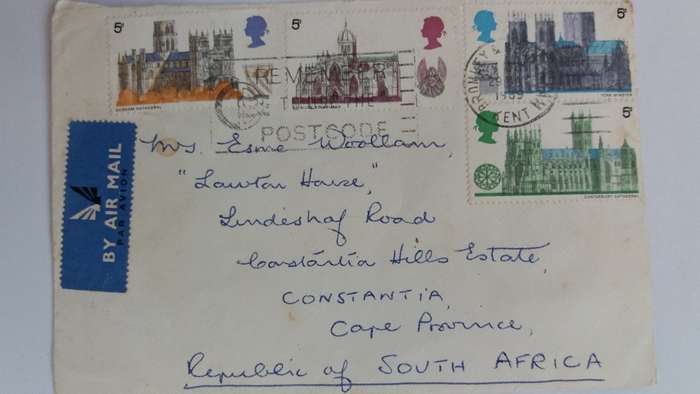 5d
5d
5d
5d
DURHAM CATHEDRAL
YORK MINSTER
CANTERBURY CATHEDRAL
REMEMBER
THE
POSTCODE
BROMLEY &
1969
KENT
BY AIR MAIL
PAR AVION
Mrs Esme Woollam,
"Lawton House,"
Lindeshof Road
Constantia Hills Estate,
CONSTANTIA,
Cape Province,
Republic of SOUTH AFRICA